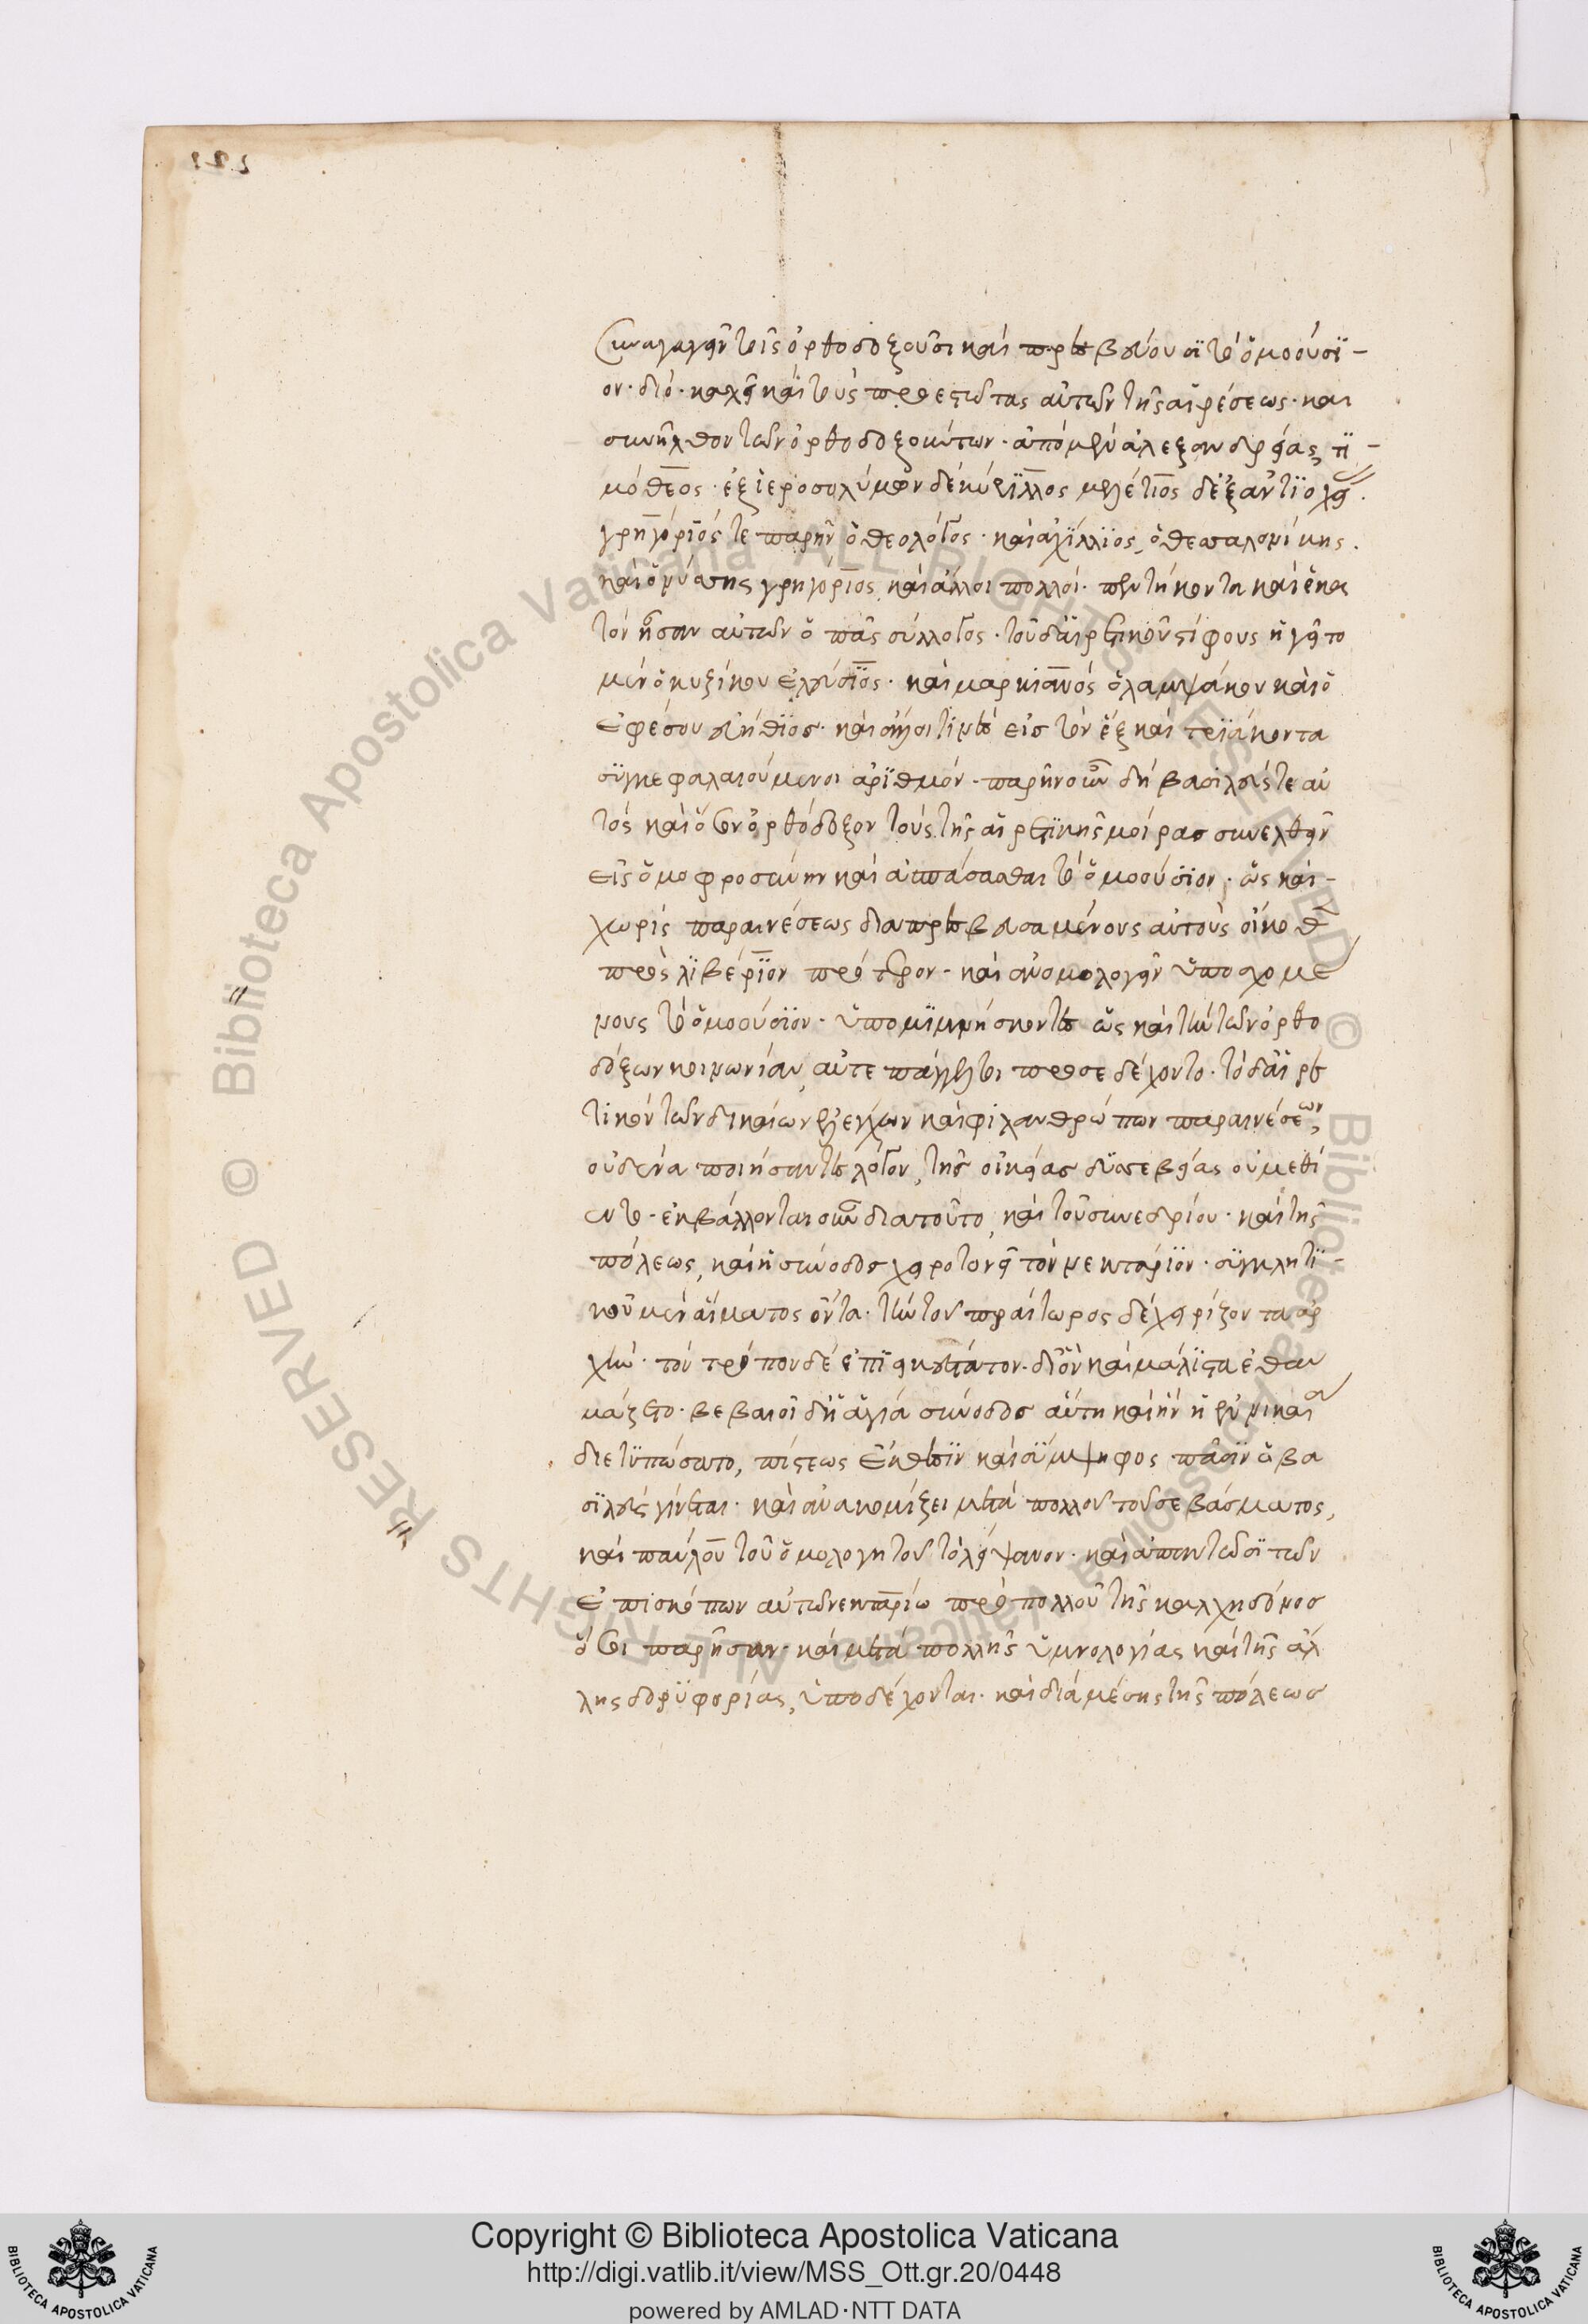 συναγαγεῖν τοῖς ὀρθοδοξοῦσι καὶ πρεσβεύουσϊ τὸ ὁμοούσϊ-
ον· διὸ· καλεῖ καὶ τοὺς προεστῶτας αὐτῶν τῆς αἱρέσεως· και
συνῆλθον τῶν ὀρθοδοξούντων· ἀπὸ μὲν ἀλεξανδρείας, τϊ-
μόθεος· ἐξ ἱεροσολύμων δὲ κύριλλος μελέτιος δ' ἐξ ἀντϊοχεί.
γρηγόριός τε παρῆν ὁ θεολόγος· καὶ ἀχίλλϊος, ὁ θεσσαλονίκης.
καὶ ὁ νύσσης γρηγόριος, καὶ ἄλλοι πολλοί· πεντήκοντα καὶ ἑκα
τὸν ἦσαν αὐτῶν ὁ πᾶς σύλλογος· τοῦ δ' αἱρετικοῦ στίφους ἡγεῖτο
μὲν ὁ κυζίκου ἐλεύσϊος· καὶ μαρκιανός ὁ λαμψάκου καὶ ὁ
ἐφέσου εὐήθϊος· καὶ ἄλλοι τινὲς εἰσ τὸν ἓξ καὶ τρϊάκοντα
σϋγκεφαλαιούμενοι ἀρϊθμόν· παρῆν οὖν δὴ βασιλεύς τε αὐ
τὸς καὶ ὅσον ὀρθόδοξον τοὺς τῆς αἱρετϊκῆς μοίρασ συνελθεῖν
εἰς ὁμοφροσύνην καὶ ἀσπάσασθαι τὸ ὁμοούσϊον· ὡς καὶ-
χωρὶς παραινέσεως διαπρεσβευσαμένους αὐτοὺς οἴκοθ
πρὸς λϊβέρϊον πρότερον· καὶ ἀνομολογεῖν ὑποσχομέ
νους τὸ ὁμοούσϊον· ὑπομϊμνήσκοντες ὡς καὶ τὴν τῶν ὀρθο
δόξων κοινωνίαν, αὐτεπάγγελτοι προσεδέχοντο· τὸ δ' αἱρε
τικὸν τῶν δικαίων ἐλέγχων καὶ φιλανθρώπων παραινέσεων,
οὐδένα ποιήσαντες λόγον, τῆς οἰκείας δϋσσεβείας οὐ μεθί
εντο· ἐκβάλλονται οὖν διατοῦτο, καὶ τοῦ συνεδρίου· καὶ τῆς
πόλεως, καὶ ἡ σύνοδοσ χειροτονεῖ τὸν νεκτάρϊον· σϋγκλητϊ-
κοῦ μὲν αἵματος ὄντα· τὴν τοῦ πραίτωρος δὲ χειρίζοντα ἀρ
χήν· τὸν τρόπον δὲ ἐπϊεικέστατον· δι' ὃν καὶ μάλϊστα ἐθαυ
μάζετο· βεβαιοῖ δ' ἡ ἁγία σύνοδοσ αὕτη καὶ ἣν ἡ ἐν νικαία
διετϋπώσατο, πίστεως ἔκθεσϊν καὶ σϋμψηφος πᾶσϊν ὁ βα
σϊλεὺς γίνεται· καὶ ἀνακομίζει μετὰ πολλοῦ τοῦ σεβάσματος,
καὶ παύλου τοῦ ὁμολογητοῦ τὸ λείψανον· καὶ ἀπαντῶσϊ τῶν
ἐπισκόπων αὐτῶ νεκταρίω πρὸ πολλοῦ τῆς καλχηδόνοσ
ὅσοι παρῆσαν· καὶ μετὰ πολλῆς ὑμνολογίας καὶ τῆς ἄλ
λης δορϋφορίας, ὑποδέχονται· καὶ διὰ μέσης τῆς πόλεωσ
Copyright © Biblioteca Apostolica Vaticana
http://digi.vatlib.it/view/MSS_Ott.gr.20/0448
powered by AMLAD·NTT DATA